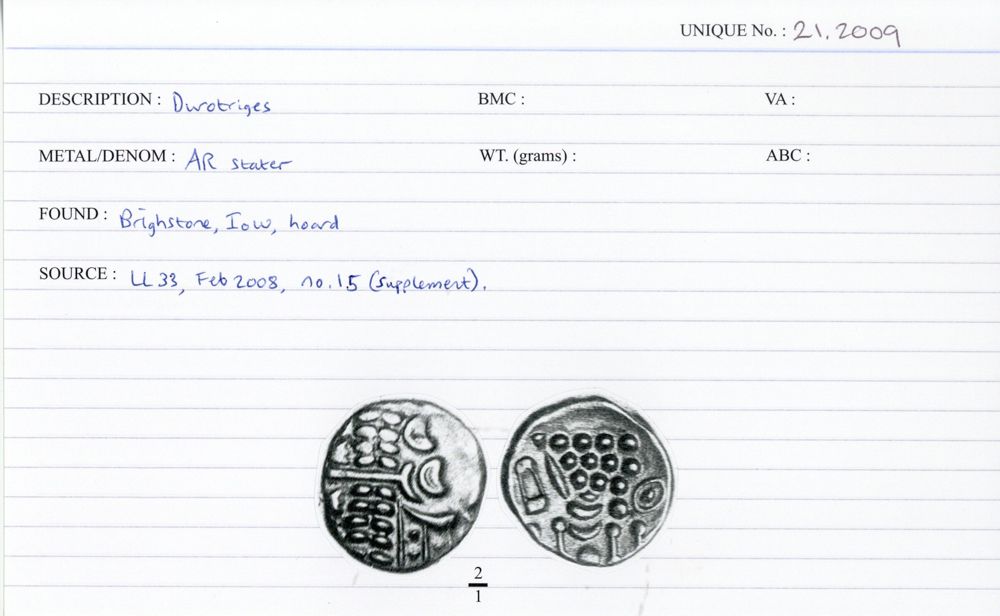 UNIQUE No. : 21.2009
DESCRIPTION : Durotriges BMC : VA :
METAL/DENOM : AR stater WT. (grams) : ABC :
FOUND : Brighstone, IoW, hoard
SOURCE : LL 33, Feb 2008, no. 15 (supplement).
2
1